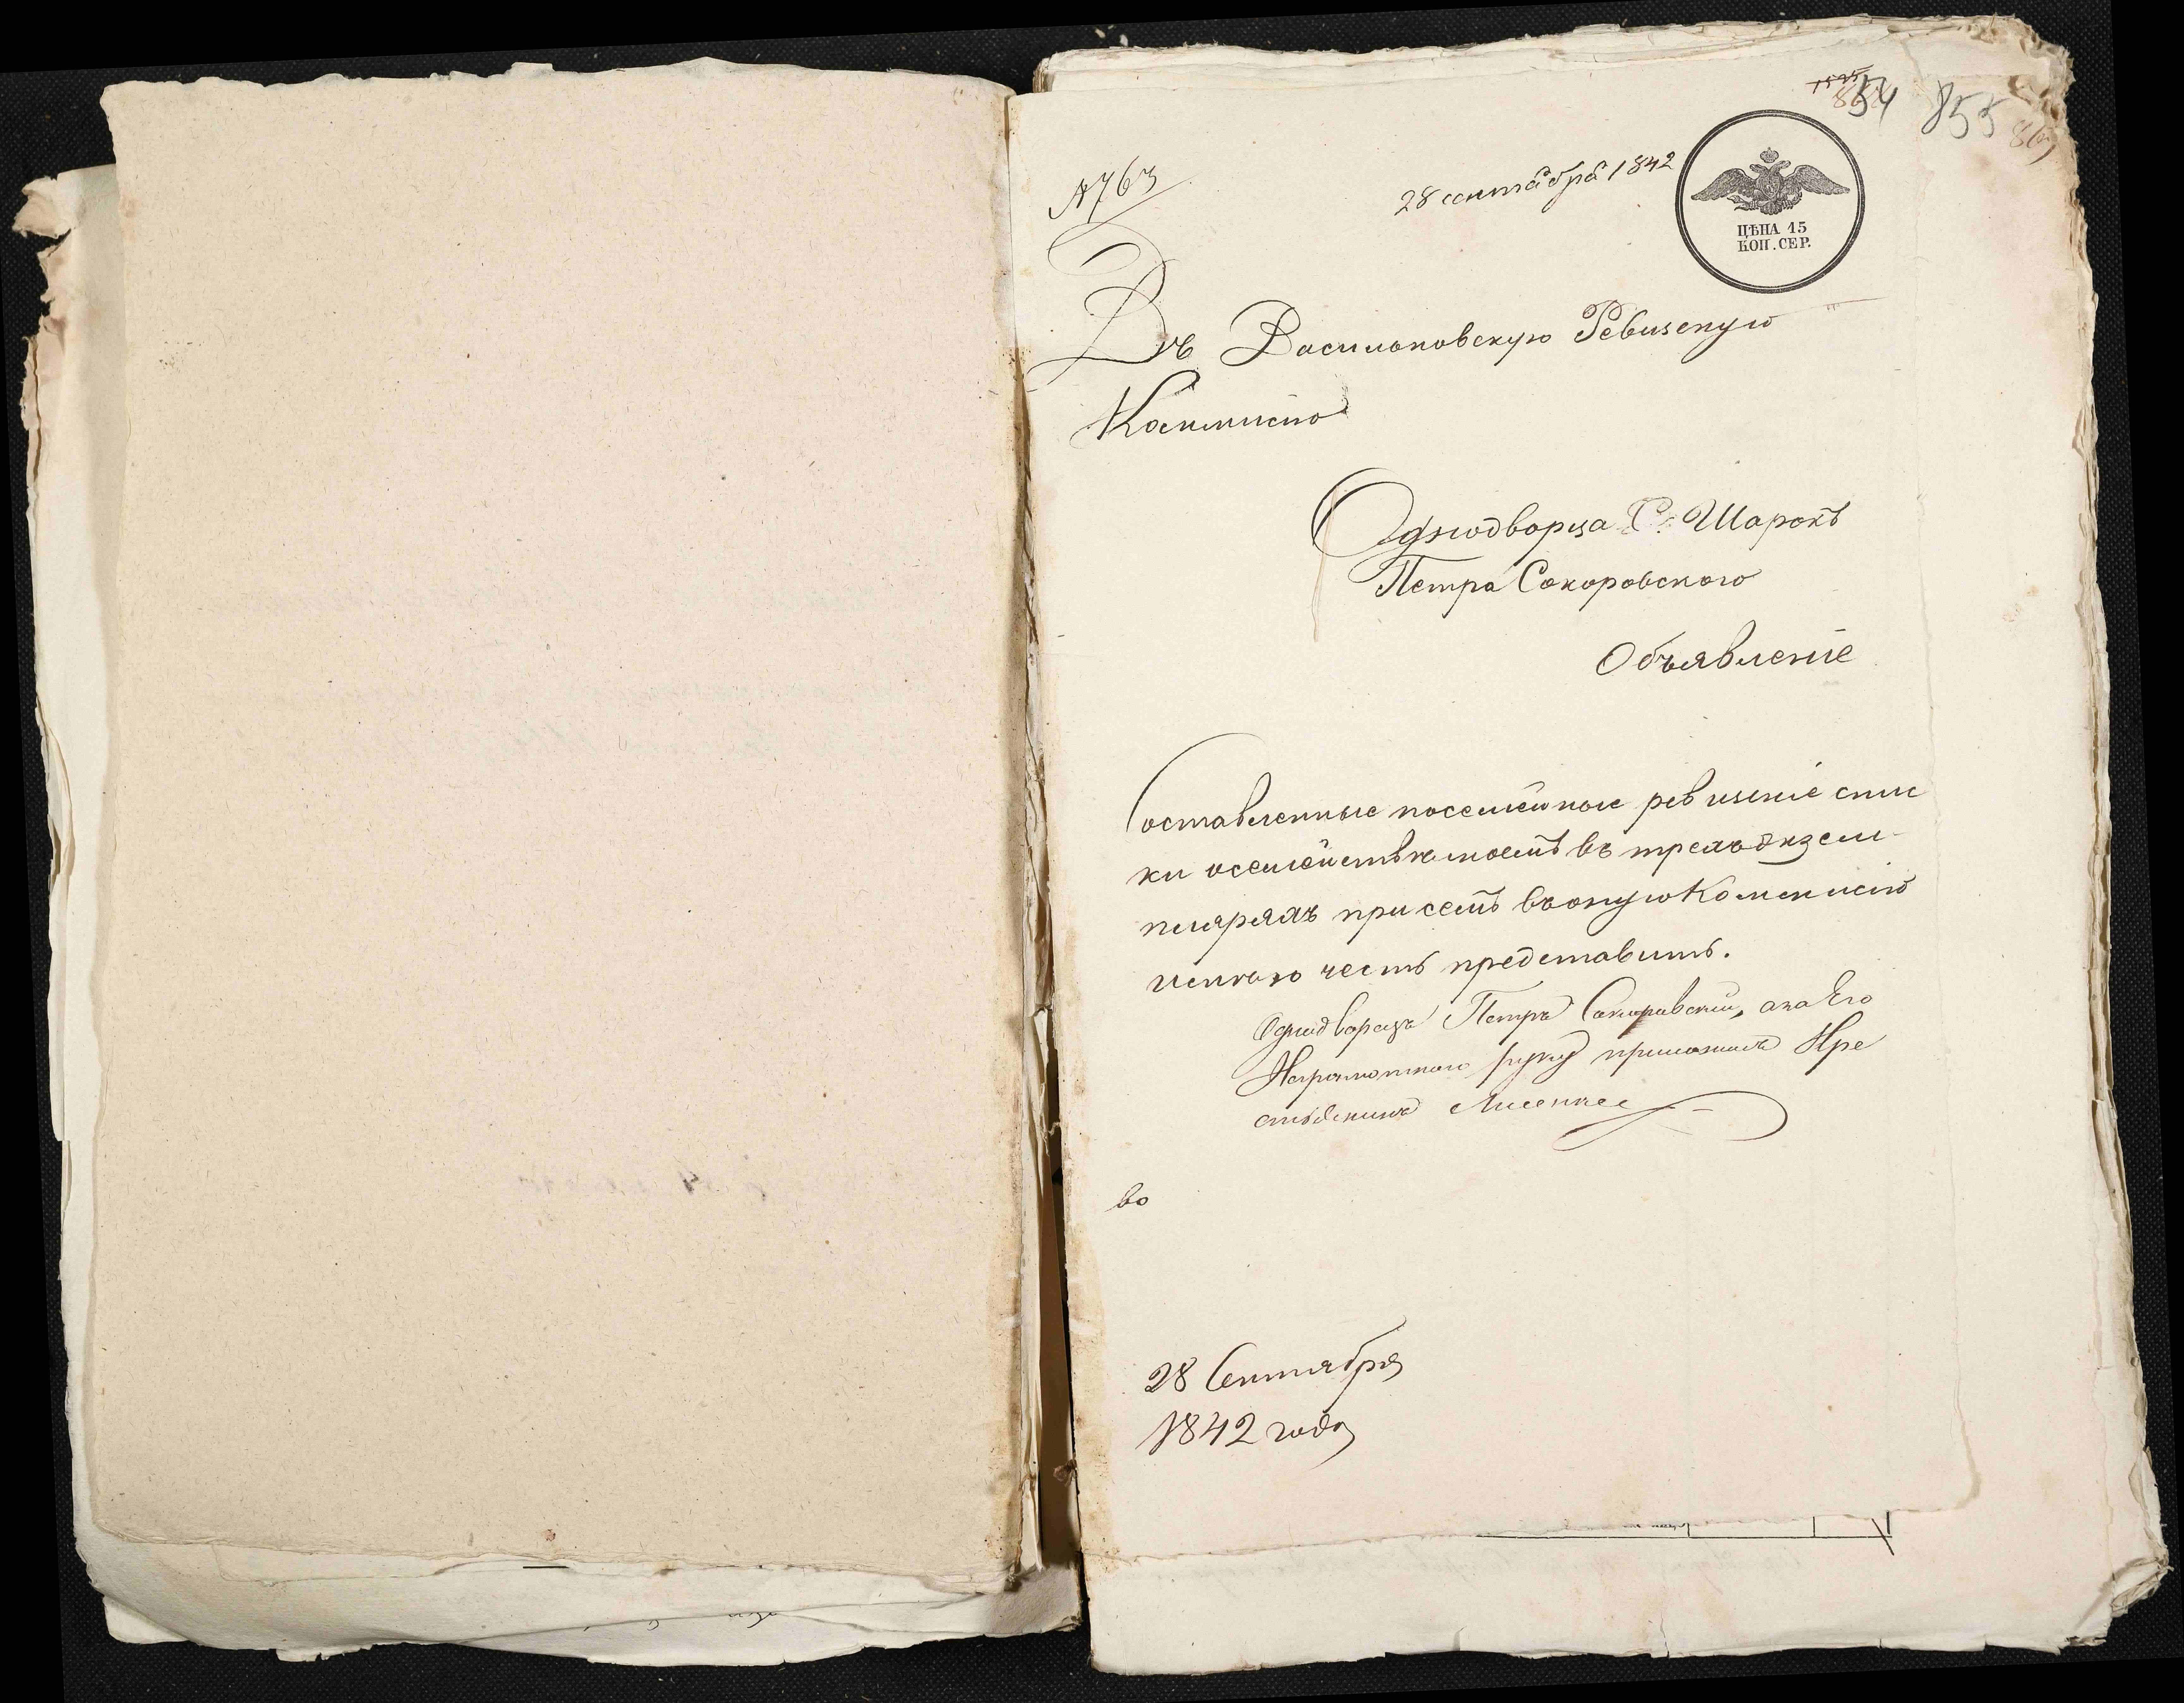 854 855
№ 763
28 сентября 1842
ЦѢНА 15
КОП. СЕР.
Въ Васильковскую Ревизскую
Коммисію
Однодворца С. Шарокъ
Петра Сокоровского
Объявленіе
Составленные посемейные ревизскіе спис
ки о семействѣ моемъ въ трехъ экзем-
плярахъ при семъ въ оную Коммисію
имѣю честь представить.
Однодворецъ Петръ Сокоровскій, а за Его
Неграмотного руку приложилъ Кре
стьянинъ
во
28 Сентября
1842 года